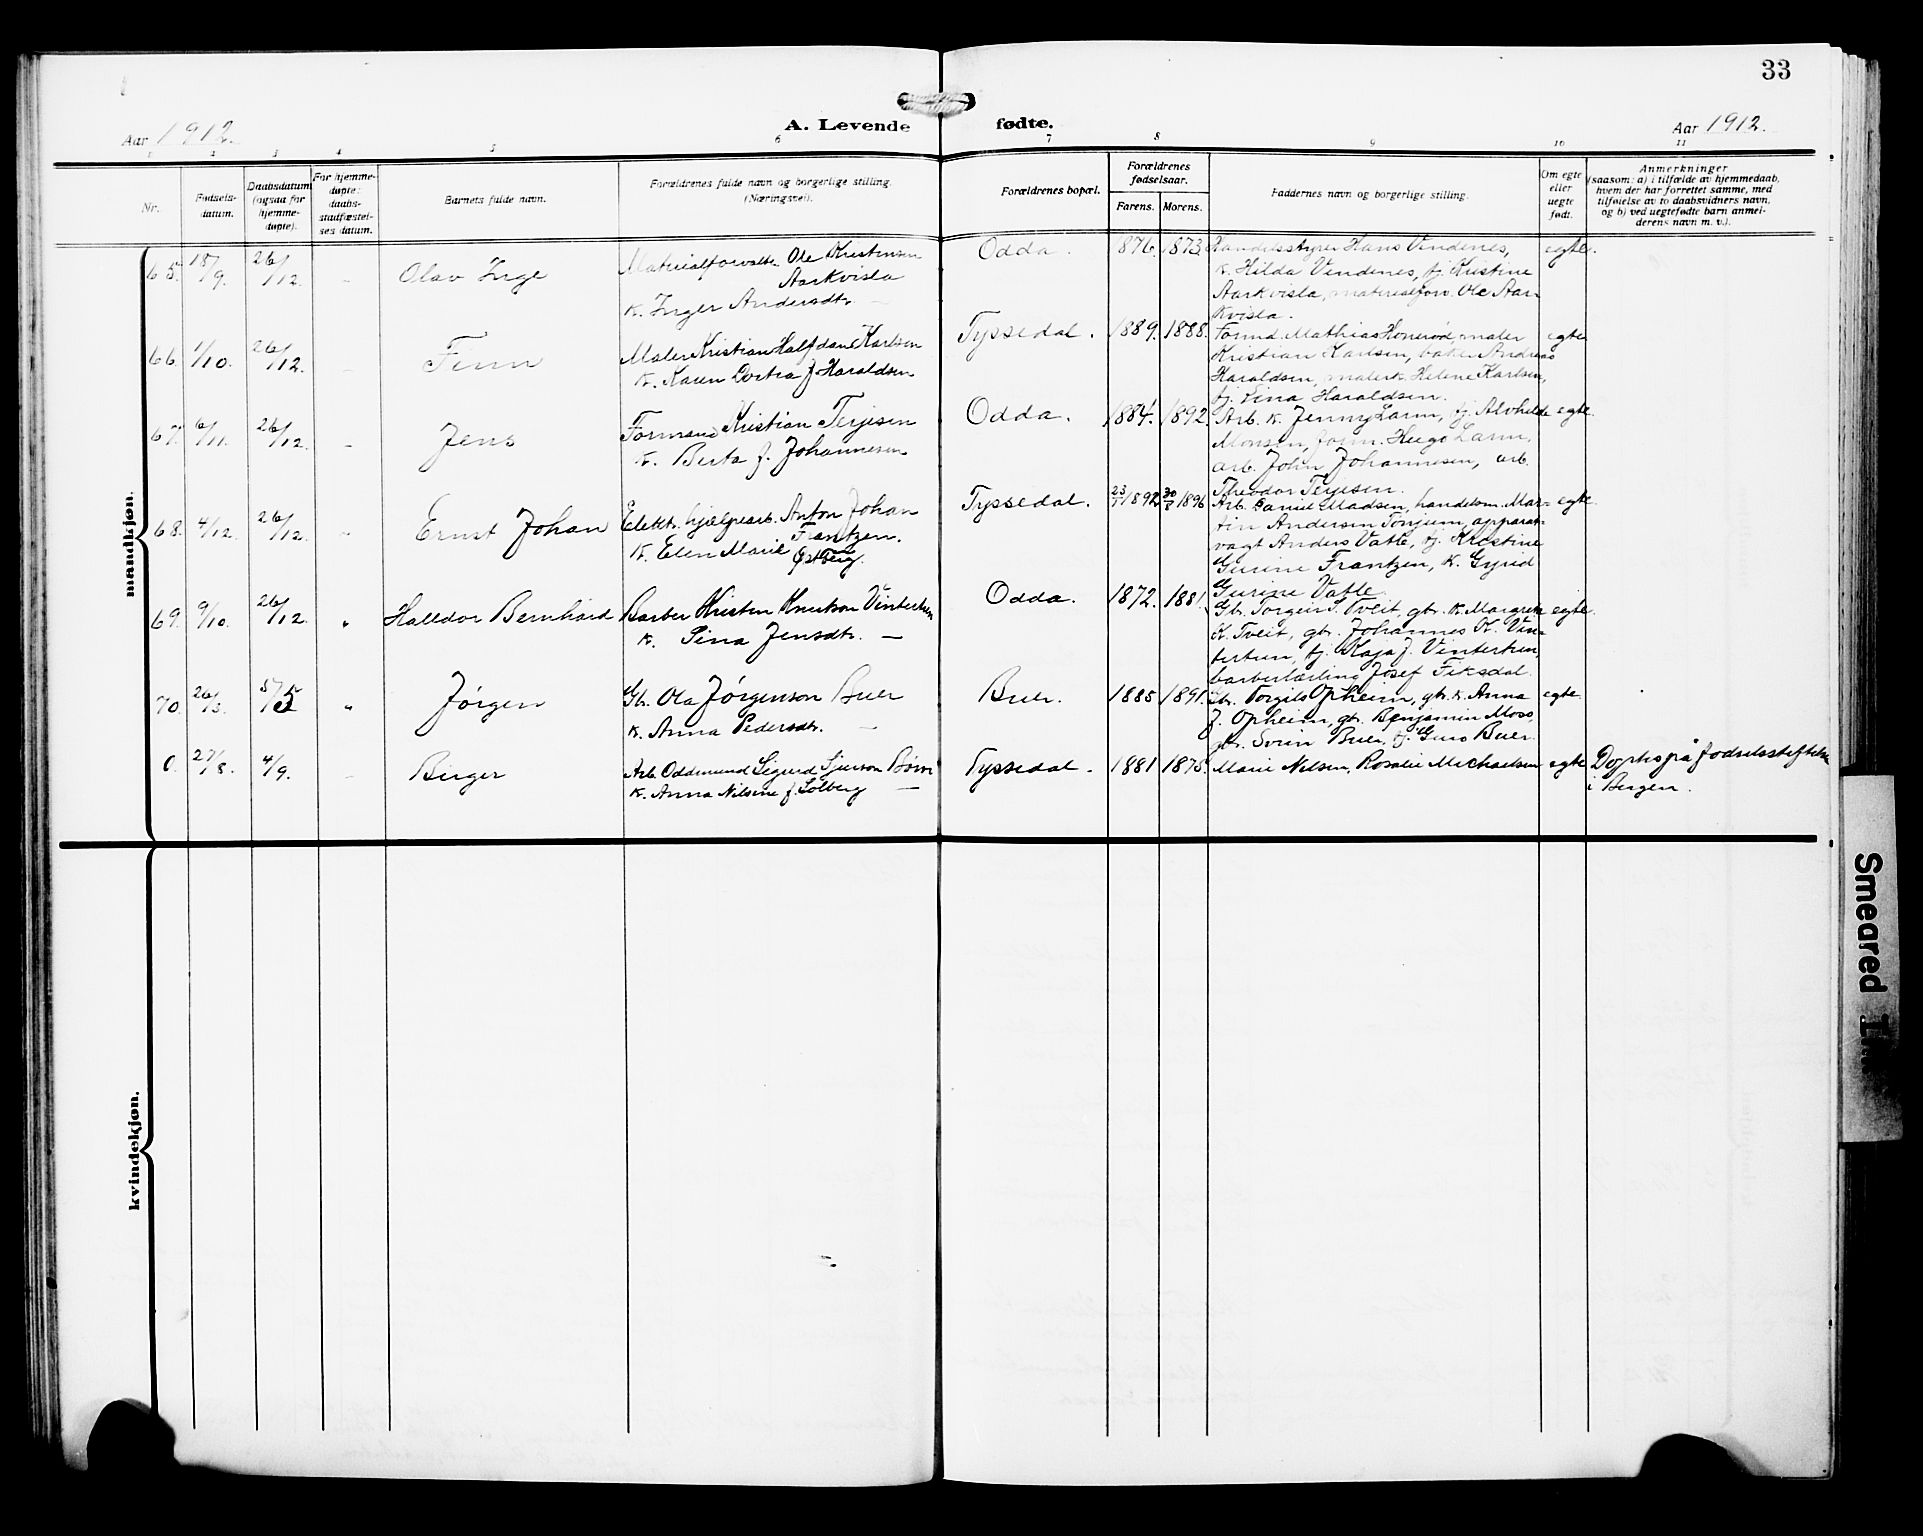 33
Aar 1912.
A. Levende fødte.
Aar 1912.
1 2 3 4 5 6 7 8 9 10 11
Nr.
Fødsels-
datum.
Daabsdatum
(ogsaa for
hjemme-
døpte).
For hjemme-
døpte:
daabs-
stadfæstel-
ses datum.
Barnets fulde navn.
Forældrenes fulde navn og borgerlige stilling.
(Næringsvei).
Forældrenes bopæl.
Forældrenes
fødselsaar.
Farens. Morens.
Faddernes navn og borgerlige stilling.
Om egte
eller
uegte
født.
Anmerkninger
(saasom: a) i tilfælde av hjemmedaab,
hvem der har forrettet samme, med
tilføielse av to daabsvidners navn,
og b) ved uegtefødte barn anmel-
derens navn m. v.).
mandkjøn.
65. 18/9. 26/12. Olav Inge
Materialforvalter Ole Kristensen
Aarkvisla
k. Inger Andersdtr. —
Odda. 1876. 1873.
Handelsstyrer Hans Vindenes,
k. Hilda Vindenes, pj. Kristine
Aarkvisla, materialforv. Ole Aar-
kvisla.
egte.
66. 1/10. 26/12. Finn
Maler Kristian Halfdan Karlsen
k. Karen Dortea f. Haraldsen
Tyssedal. 1889. 1888.
Formd. Mathias Honerød, maler
Kristian Karlsen, baker Andreas
Haraldsen, malerk. Helene Karlsen,
pj. Lina Haraldsen.
egte
67. 6/11. 26/12. Jens
Formand Kristian Terjesen
k. Berta f. Johannesen
Odda. 1884. 1892.
Arb. k. Jenny Larm, pj. Alvhilde
Monsen, form. Hugo Larm,
arb. John Johannesen, arb.
Theodor Terjesen.
egte.
68. 4/12. 26/12. Ernst Johan
Elektr. hjælpearb. Anton Johan
Frantzen.
k. Elen Marie Østberg.
Tyssedal. 23/7 1892 30/8 1896
Arb. Daniel Madsen, handelsm. Mar-
tin Andersen Tonjum, apparat-
vagt Anders Vatle, pj. Kristine
Gurine Frantzen, k. Gyrid
Gurine Vatle.
egte
69. 9/10. 26/12. „ Halldor Bernhard
Barber Kristen Knutson Vintertun
k. Sina Jensdtr. —
Odda. 1872. 1881.
Gb. Torgeir S. Tveit, gbr. k. Margrete
K. Tveit, gbr. Johannes K. Vin-
tertun, pj. Kaja J. Vintertun,
barberlærling Josef Fiksdal.
egte.
70. 26/3. 5/5 „ Jørgen
Gb. Ola Jørgenson Buer
k. Anna Pedersdtr. —
Buer. 1885 1891.
Gbr. Torgils Opheim, gbr. k. Anna
J. Opheim, gbr. Benjamin Moss,
gbr. Svein Buer, pj. Guro Buer.
egte
0. 27/8. 4/9. Birger
Arb. Oddmund Sigurd Sjurson Børve
k. Anna Nilsine f. Solberg —
Tyssedal. 1881 1875.
Marie Nilsen, Rosalie Michaelsen
egte
Døpt på fødselsstiftelsen
i Bergen.
kvindekjøn.
Smeared